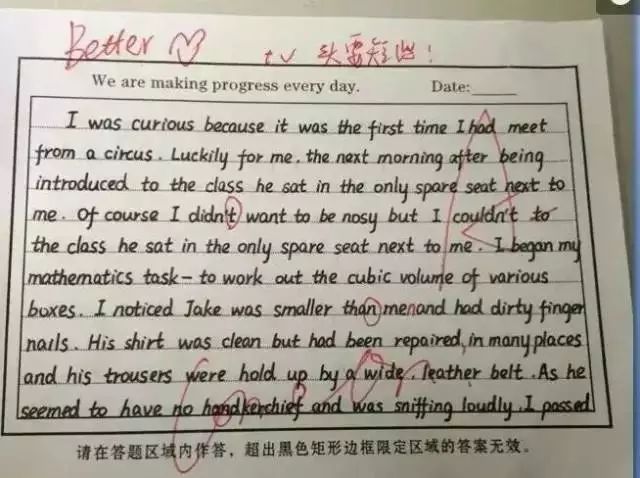 Better
t v 头要短些!
We are making progress every day. Date:
I was curious because it was the first time I had meet
from a circus. Luckily for me. the next morning after being
introduced to the class he sat in the only spare seat next to
me. Of course I didn't want to be nosy but I couldn't to
the class he sat in the only spare seat next to me. I began my
mathematics task - to work out the cubic volume of various
boxes. I noticed Jake was smaller than menand had dirty finger
nails. His shirt was clean but had been repaired, in many places
and his trousers were hold up by a wide, leather belt. As he
seemed to have no handkerchief and was sniffing loudly. I passed
请在答题区域内作答，超出黑色矩形边框限定区域的答案无效。